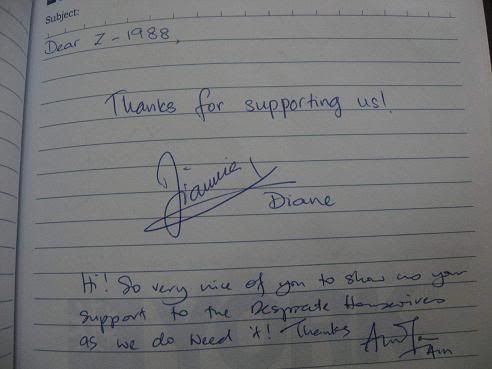 Subject:
Dear Z-1988,
Thanks for supporting us!
Diane
Hi! So very nice of you to show us your
support to the Desperate Housewives
as we do need it! Thanks